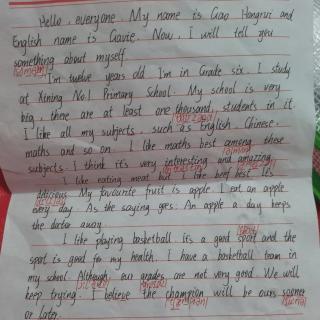 Hello everyone. My name is Gao Hongrui and
English name is Gavie. Now, I will tell you
something about myself.
I'm twelve years old. I'm in Grade six. I study
at Xining No.1 Primary School. My school is very
big, there are at least one thousand, students in it.
I like all my subjects, such as English, Chinese,
maths and so on. I like maths best among these
subjects. I think it's very interesting and amazing.
I like eating meat but I like beef best. It's
delicious. My favourite fruit is apple. I eat an apple
every day. As the saying goes: An apple a day keeps
the doctor away.
I like playing basketball. it's a good sport and the
sport is good for my health. I have a basketball team in
my school. Although, our grades are not very good. We will
keep trying. I believe the champion will be ours sooner
or later.